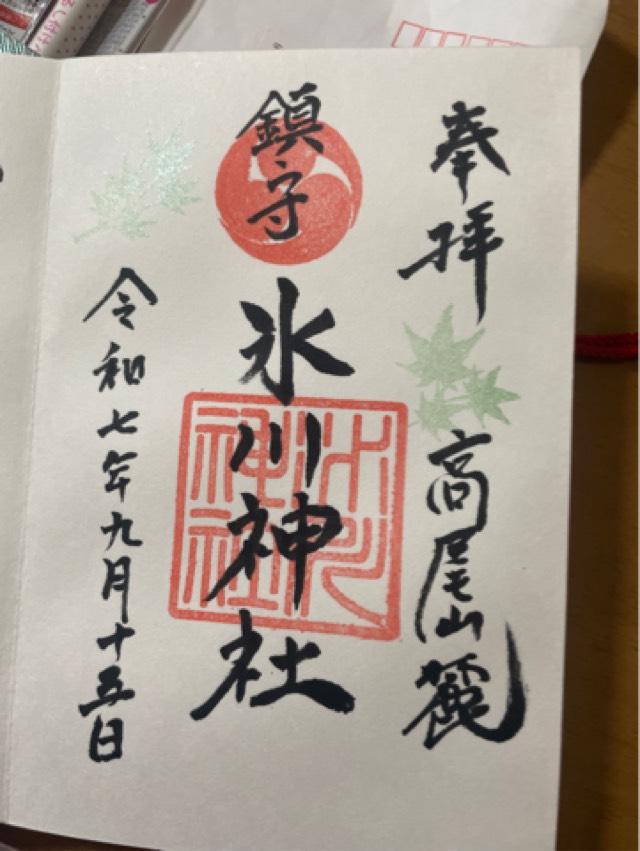 奉拝
高尾山麓
鎮守
氷川神社
氷川神社
令和七年九月十五日